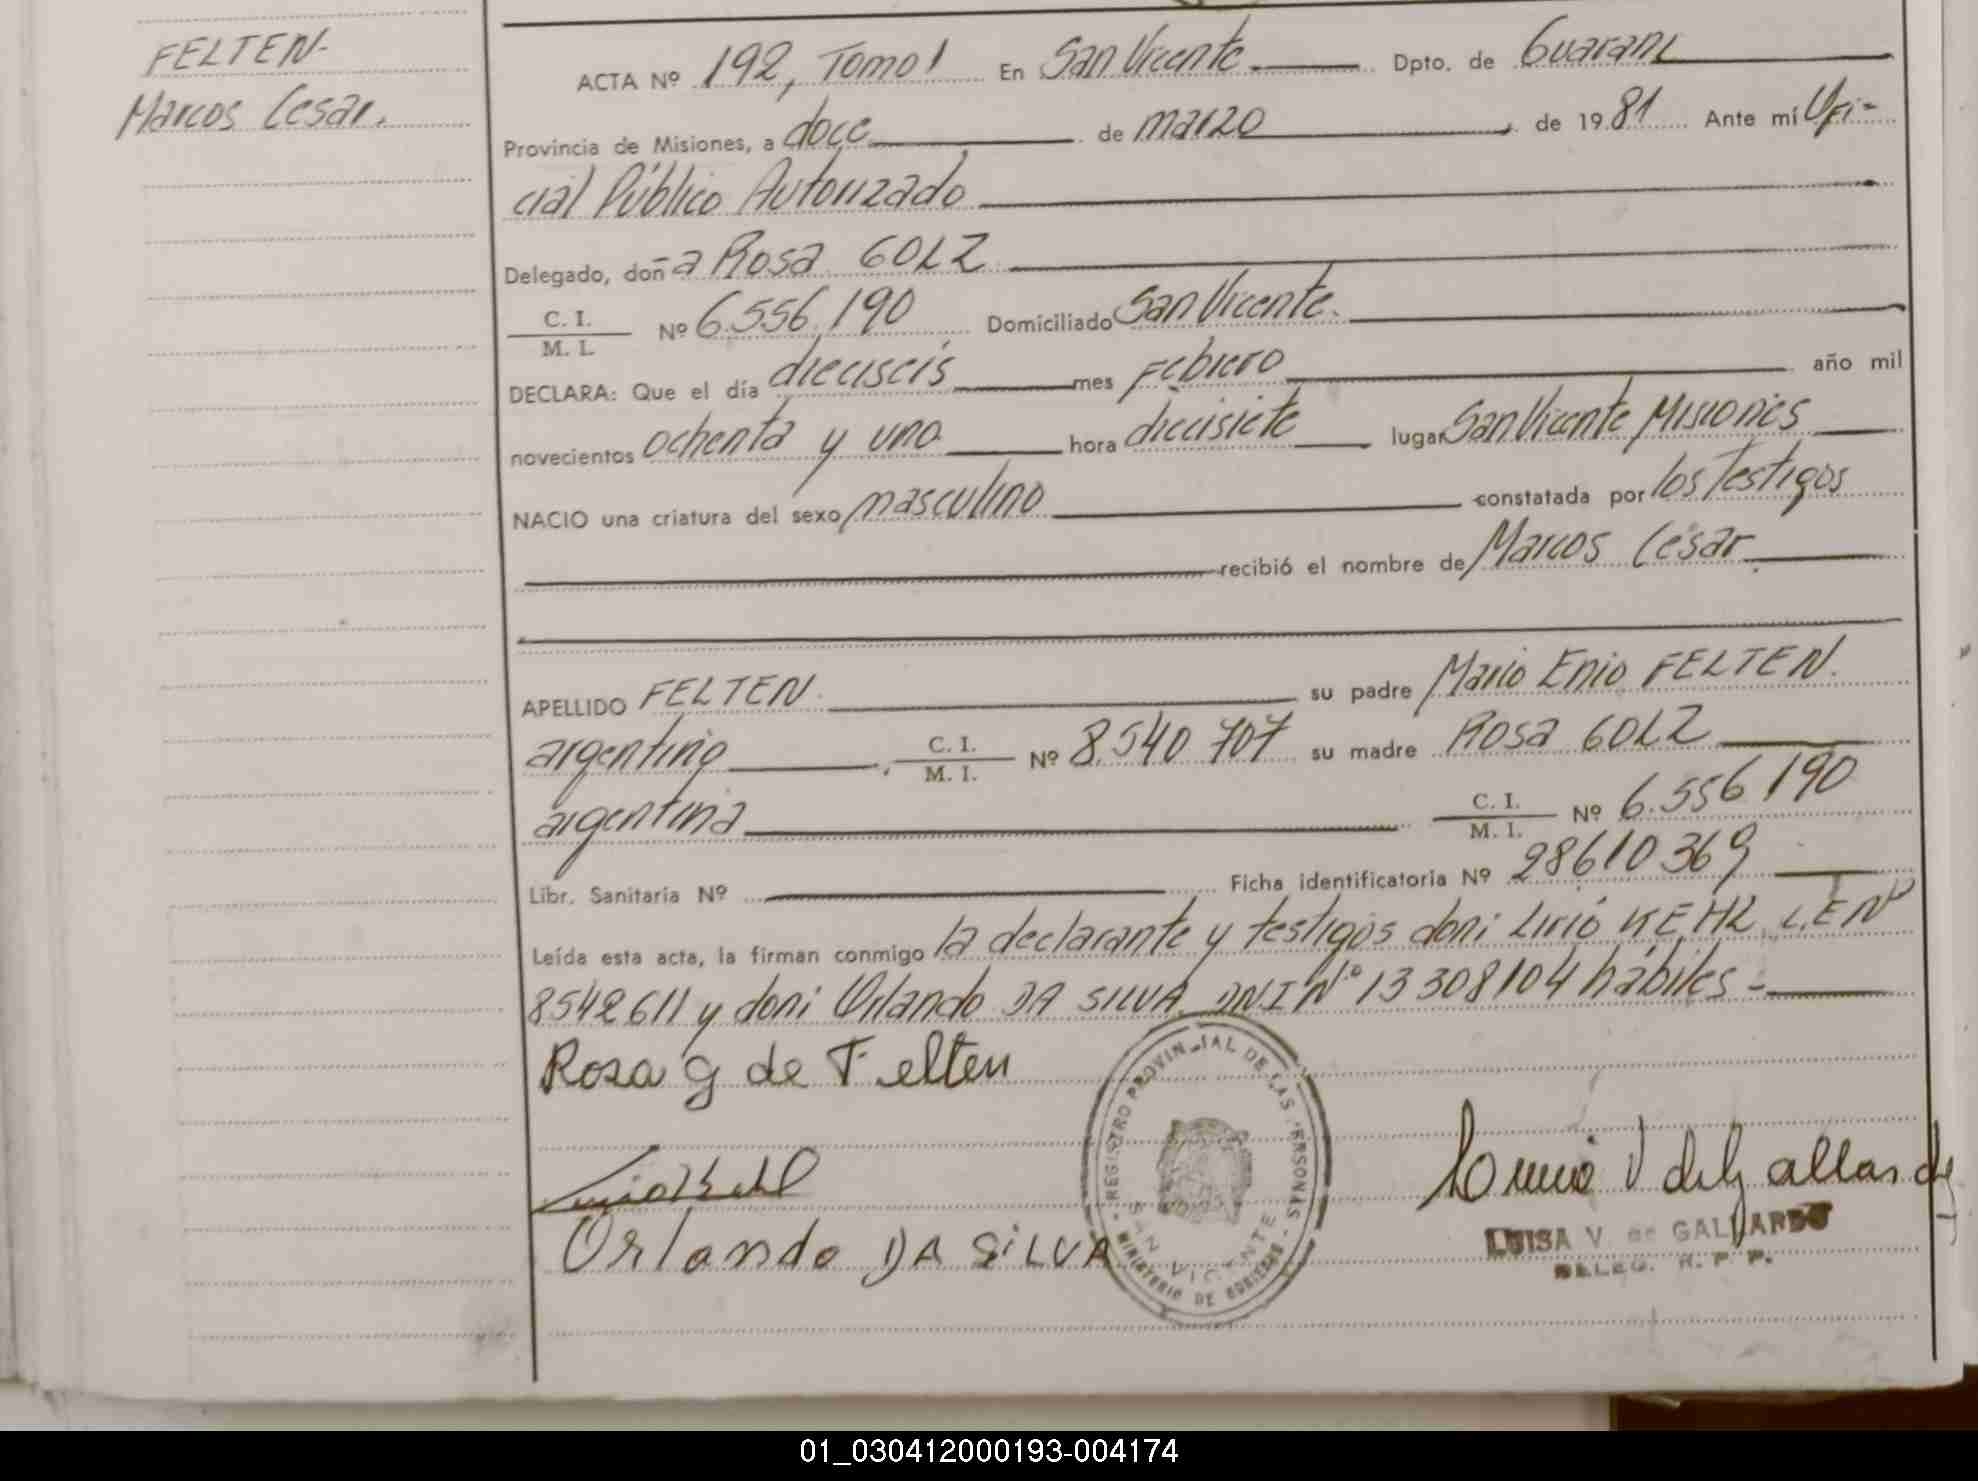 FELTEN-
Marcos Cesar.
ACTA Nº 192, Tomo I En San Vicente Dpto. de Guarani
Provincia de Misiones, a doce de marzo de 1981 Ante mí Ofi-
cial Público Autorizado
Delegado, doña Rosa GOLZ
C. I. / M. I. Nº 6.556.190 Domiciliado San Vicente.
DECLARA: Que el día dieciseis mes Febrero año mil
novecientos ochenta y uno hora diecisiete lugar San Vicente Misiones
NACIO una criatura del sexo masculino constatada por los Testigos
recibió el nombre de Marcos Cesar
APELLIDO FELTEN. su padre Mario Enio FELTEN.
argentino C. I. / M. I. Nº 8.540.707 su madre Rosa GOLZ
argentina C. I. / M. I. Nº 6.556 190
Libr. Sanitaria Nº Ficha identificatoria Nº 28610369
Leída esta acta, la firman conmigo la declarante y testigos doni Lirio KEHL L.E Nº
8542611 y doni Orlando DA SILVA DNI Nº 13308104 hábiles-
Rosa G de Felten
Orlando DA SILVA
REGISTRO PROVINCIAL DE LAS PERSONAS
SAN VICENTE
MINISTERIO DE GOBIERNO
LUISA V. de GALLARDO
DELEG. R. P. P.
01_030412000193-004174